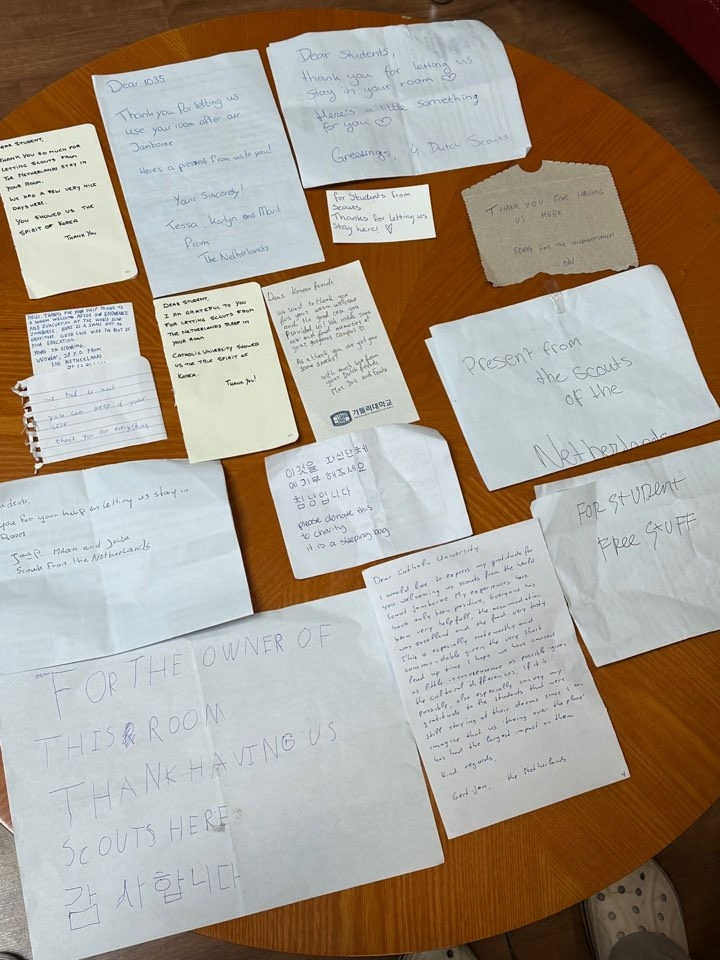 Dear Students,
thank you for letting us
stay in your room ♡
Here's a little something
for you ♡
Greetings, 4 Dutch Scouts
Dear 1035,
Thank you for letting us
use your room after our
Jamboree
Here's a present from us to you!
Yours Sincerely!
Tessa, Karlyn and Marit
from
The Netherlands
STUDENT,
THANK YOU SO MUCH FOR
LETTING SCOUTS FROM
THE NETHERLANDS STAY IN
YOUR ROOM.
WE HAD A FEW VERY NICE
DAYS HERE.
YOU SHOWED US THE
SPIRIT OF KOREA
THANK YOU
For Students from
Scouts.
Thankes for letting us
Stay here! ♡
THANK YOU FOR HAVING
US HERE
SORRY FOR THE INCONVENIENCE!
HELLO, THANKS FOR YOUR HELP TO GIVE US
A WARM WELCOME AFTER OUR ENDURANCE
AND EVACUATION AT THE WORLD SCOUT
JAMBOREE. HERE IS A SMALL GIFT AS
GRATITUDE. GOOD LUCK WITH THE REST OF
YOUR EDUCATION.
THE NETHERLANDS
we had to wait
you can keep it your
self
thank you for everything
DEAR STUDENT,
I AM GRATEFUL TO YOU
FOR LETTING SCOUTS FROM
THE NETHERLANDS SLEEP IN
YOUR ROOM
CATHOLIC UNIVERSITY SHOWED
US THE TRUE SPIRIT OF
KOREA.
THANK YOU!
Dear Korean friends
We want to thank you
for your warm welcome
and the good care you
provided us! We made some
new and good memories at
your gorgeous campus ☺
As a thank you we got you
some snacks!
With much love from
your Dutch friends
가톨릭대학교
Present from
the scouts
of the
Netherlands
이것을 자선단체
에 기부 해주세요
침낭입니다
please donate this
to charity
it is a sleeping bag
FOR STUDENT
FREE STUFF
you for your help en letting us stay in
Room.
Jaap, Milan and
Scouts from the Netherlands
Dear Catholic University
I would like to express my gratitude for
you welcoming us scouts from the World
Scout Jamboree. My experiences here
have only been positive. Everyone has
been very helpfull, the accomodation
was excellend and the food very tasty
This is especially noteworthy and
commendable given the very short
lead up time. I hope we have caused
as little inconvenience as possible given
the cultural differences. If it is
possible also especially convey my
gratitude to the students that were
still staying at their dorms since I can
imagine that us taking over the place
has had the largest impact on them
Kind regards,
Gert-Jan, the Netherlands
FOR THE OWNER OF
THIS ROOM
THANK HAVING US
SCOUTS HERE
감사합니다